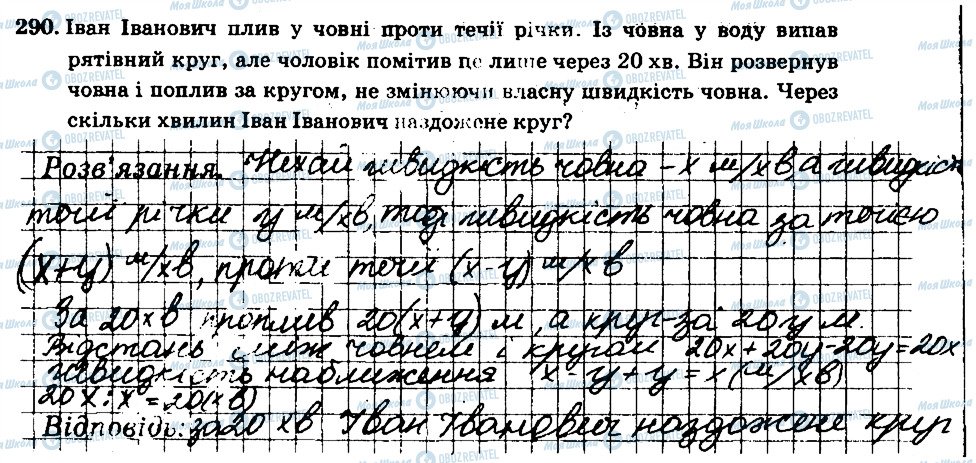 290. Іван Іванович плив у човні проти течії річки. Із човна у воду випав
рятівний круг, але чоловік помітив це лише через 20 хв. Він розвернув
човна і поплив за кругом, не змінюючи власну швидкість човна. Через
скільки хвилин Іван Іванович наздожене круг?
Розв'язання. Нехай швидкість човна – x м/хв, а швидкість
течії річки y м/хв, тоді швидкість човна за течією
(x+y) м/хв, проти течії (x-y) м/хв
За 20 хв проплив 20(x+y) м, а круг - за 20y м.
Відстань між човнем і кругом 20x+20y-20y=20x
Швидкість наближення x y+y=x (м/хв)
20x:x=20(хв)
Відповідь: за 20 хв Іван Іванович наздожене круг